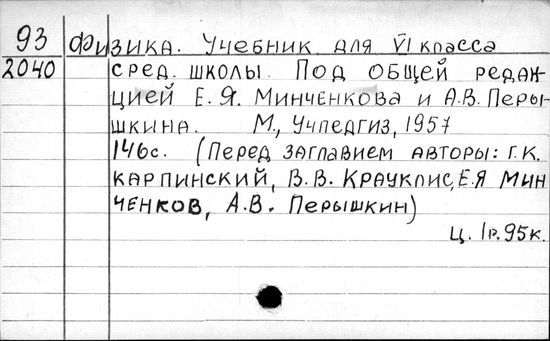 93 Физика. Учебник для VI класса
2040 сред. школы. Под общей редак-
цией Е.Я. Минченкова и А.В. Перы-
шкина. М., Учпедгиз, 1957
146с. (Перед заглавием авторы: Г.К.
Карпинский, В.В. Крауклис, Е.Я Мин
ченков, А.В. Перышкин)
ц. 1р.95к.